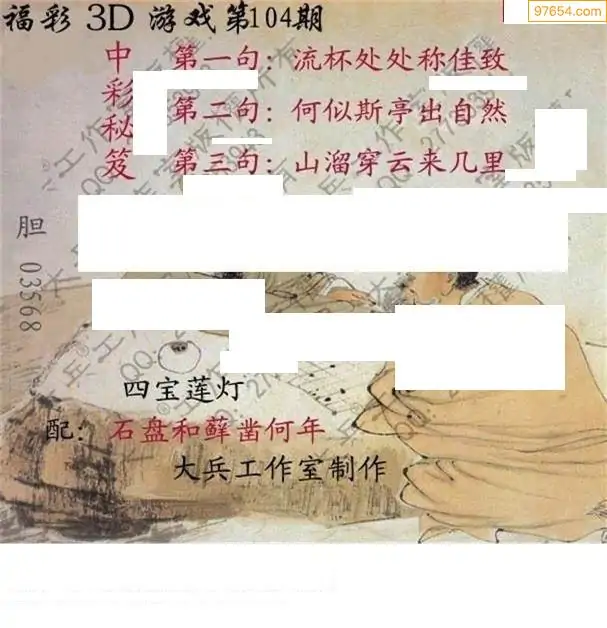 福彩 3D 游戏第104期
97654.com
中彩秘笈
第一句：流杯处处称佳致
第二句：何似斯亭出自然
第三句：山溜穿云来几里
胆 03568
四宝莲灯
配：石盘和藓凿何年
大兵工作室制作